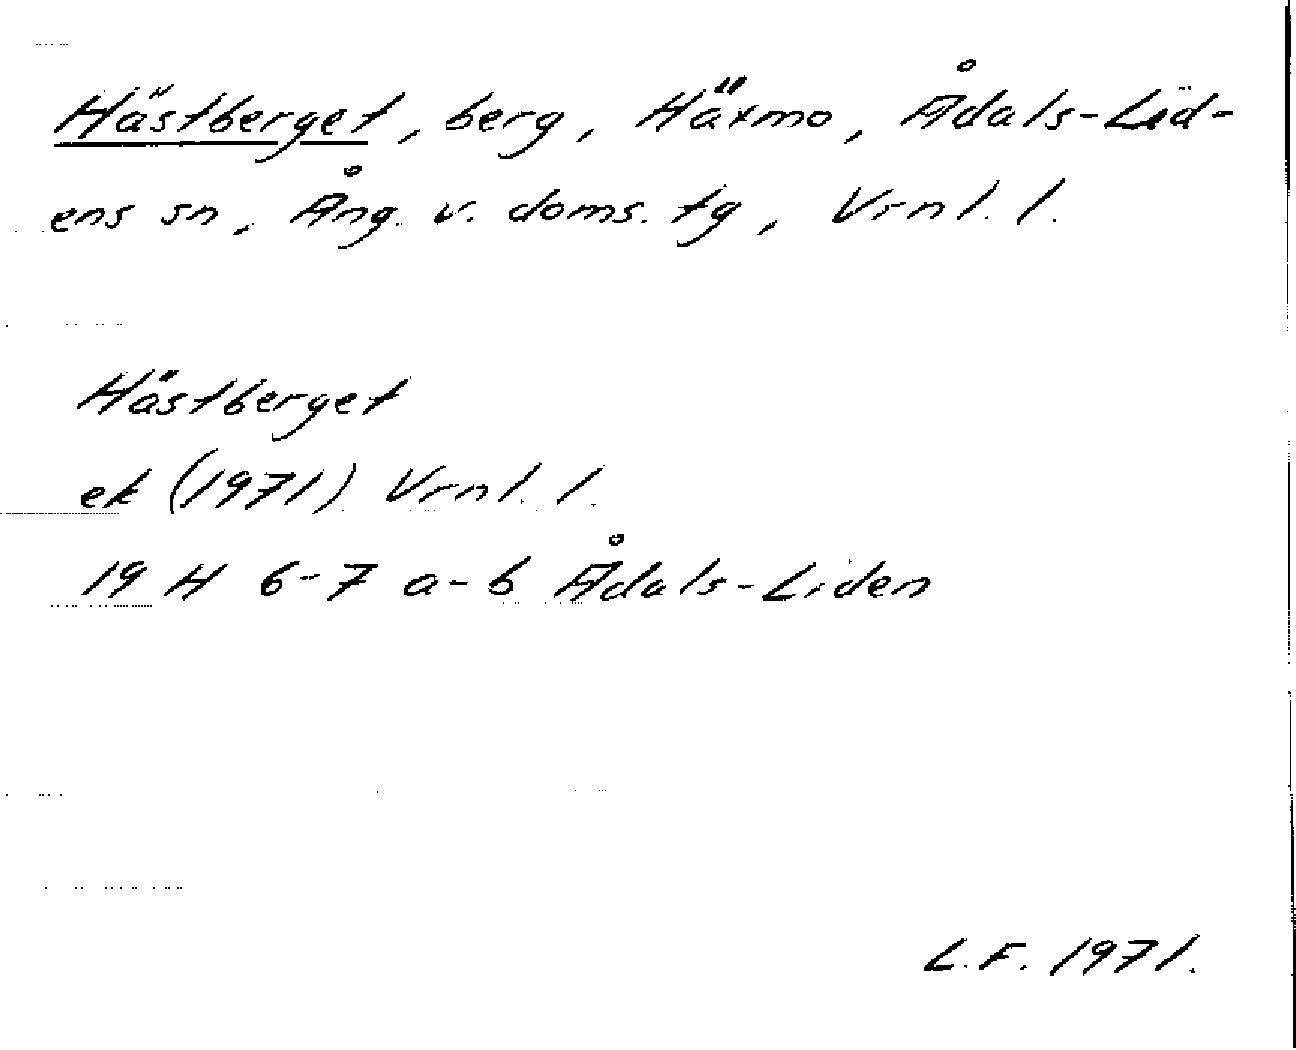 Hästberget, berg, Häxmo, Ådals-Lid-
ens sn, Ång. v. doms. tg, Vrnl. l.
Hästberget
ek (1971) Vrnl. l.
19 H 6-7 a-b Ådals-Liden
L.F. 1971.